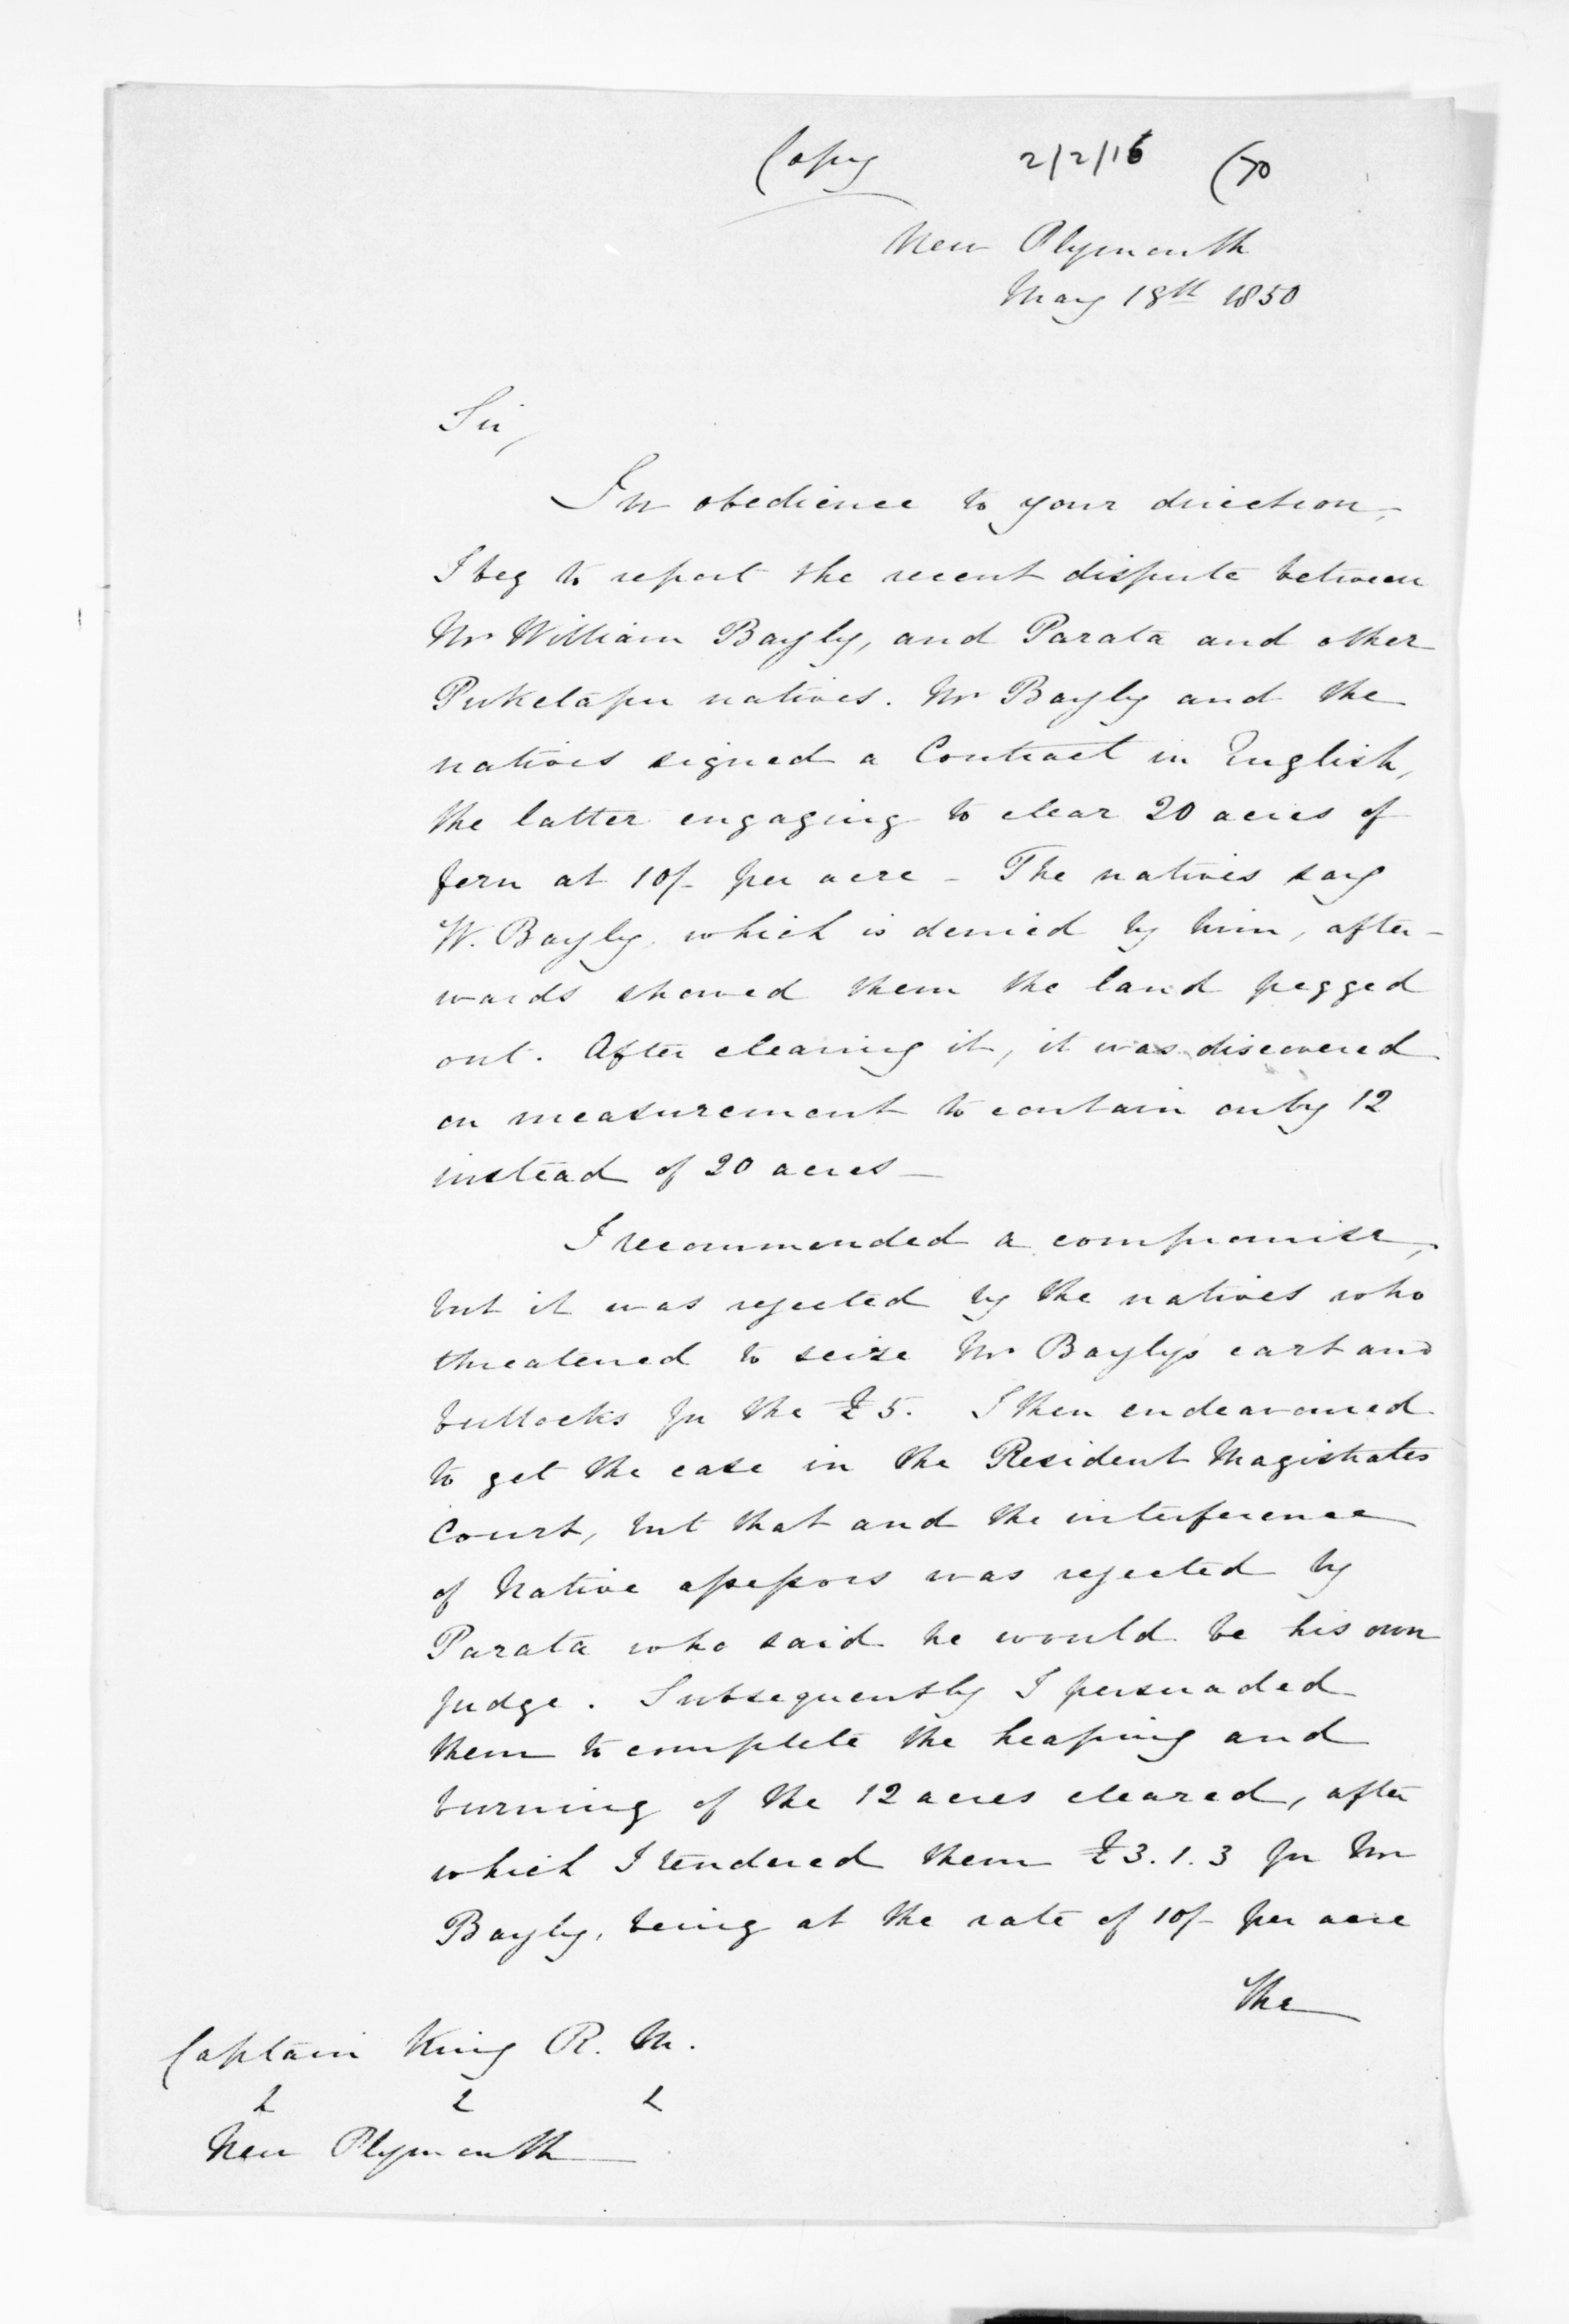 Copy 2/2/16 (70
New Plymouth
May 18th 1850
Sir,
In obedience to your direction,
I beg to report the recent dispute between
Mr William Bayly, and Parata and other
Puketapu natives. Mr Bayly and the
natives signed a Contract in English,
the latter engaging to clear 20 acres of
fern at 10/- per acre - The natives say
W. Bayly, which is denied by him, after-
wards showed them the land pegged
out. After clearing it, it was discovered
on measurement to contain only 12
instead of 20 acres —
I recommended a compromise,
but it was rejected by the natives who
threatened to seize Mr Bayly's cart and
bullocks for the £5. I then endeavoured
to get the case in the Resident Magistrates
Court, but that and the interference
of Native assessors was rejected by
Parata who said he would be his own
judge. Subsequently I persuaded
them to complete the heaping and
burning of the 12 acres cleared, after
which I tendered them £3.1.3 for Mr
Bayly, being at the rate of 10/- per acre
the
Captain King R. M.
New Plymouth